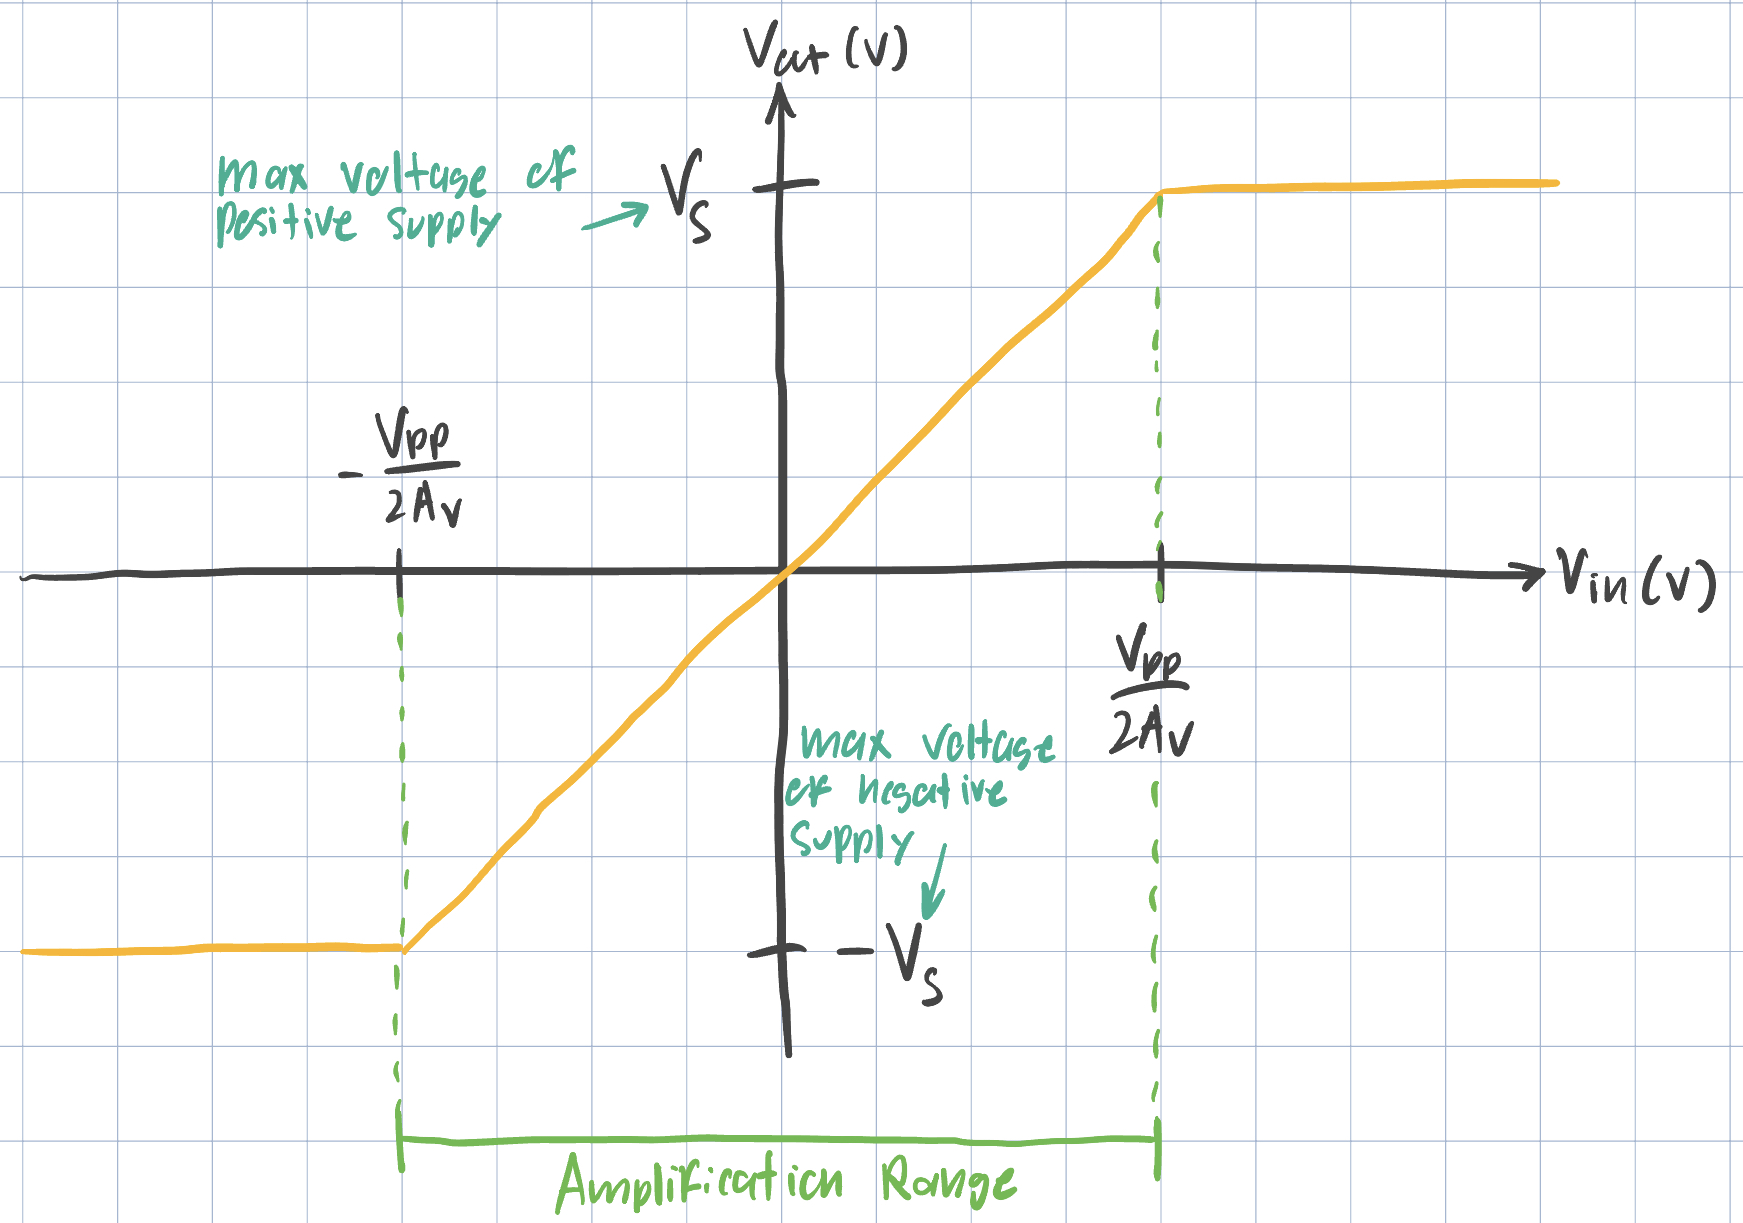 Vout (V)
max voltage of
positive supply
Vs
- Vpp
2Av
Vin (V)
Vpp
2Av
max voltage
of negative
supply
- Vs
Amplification Range